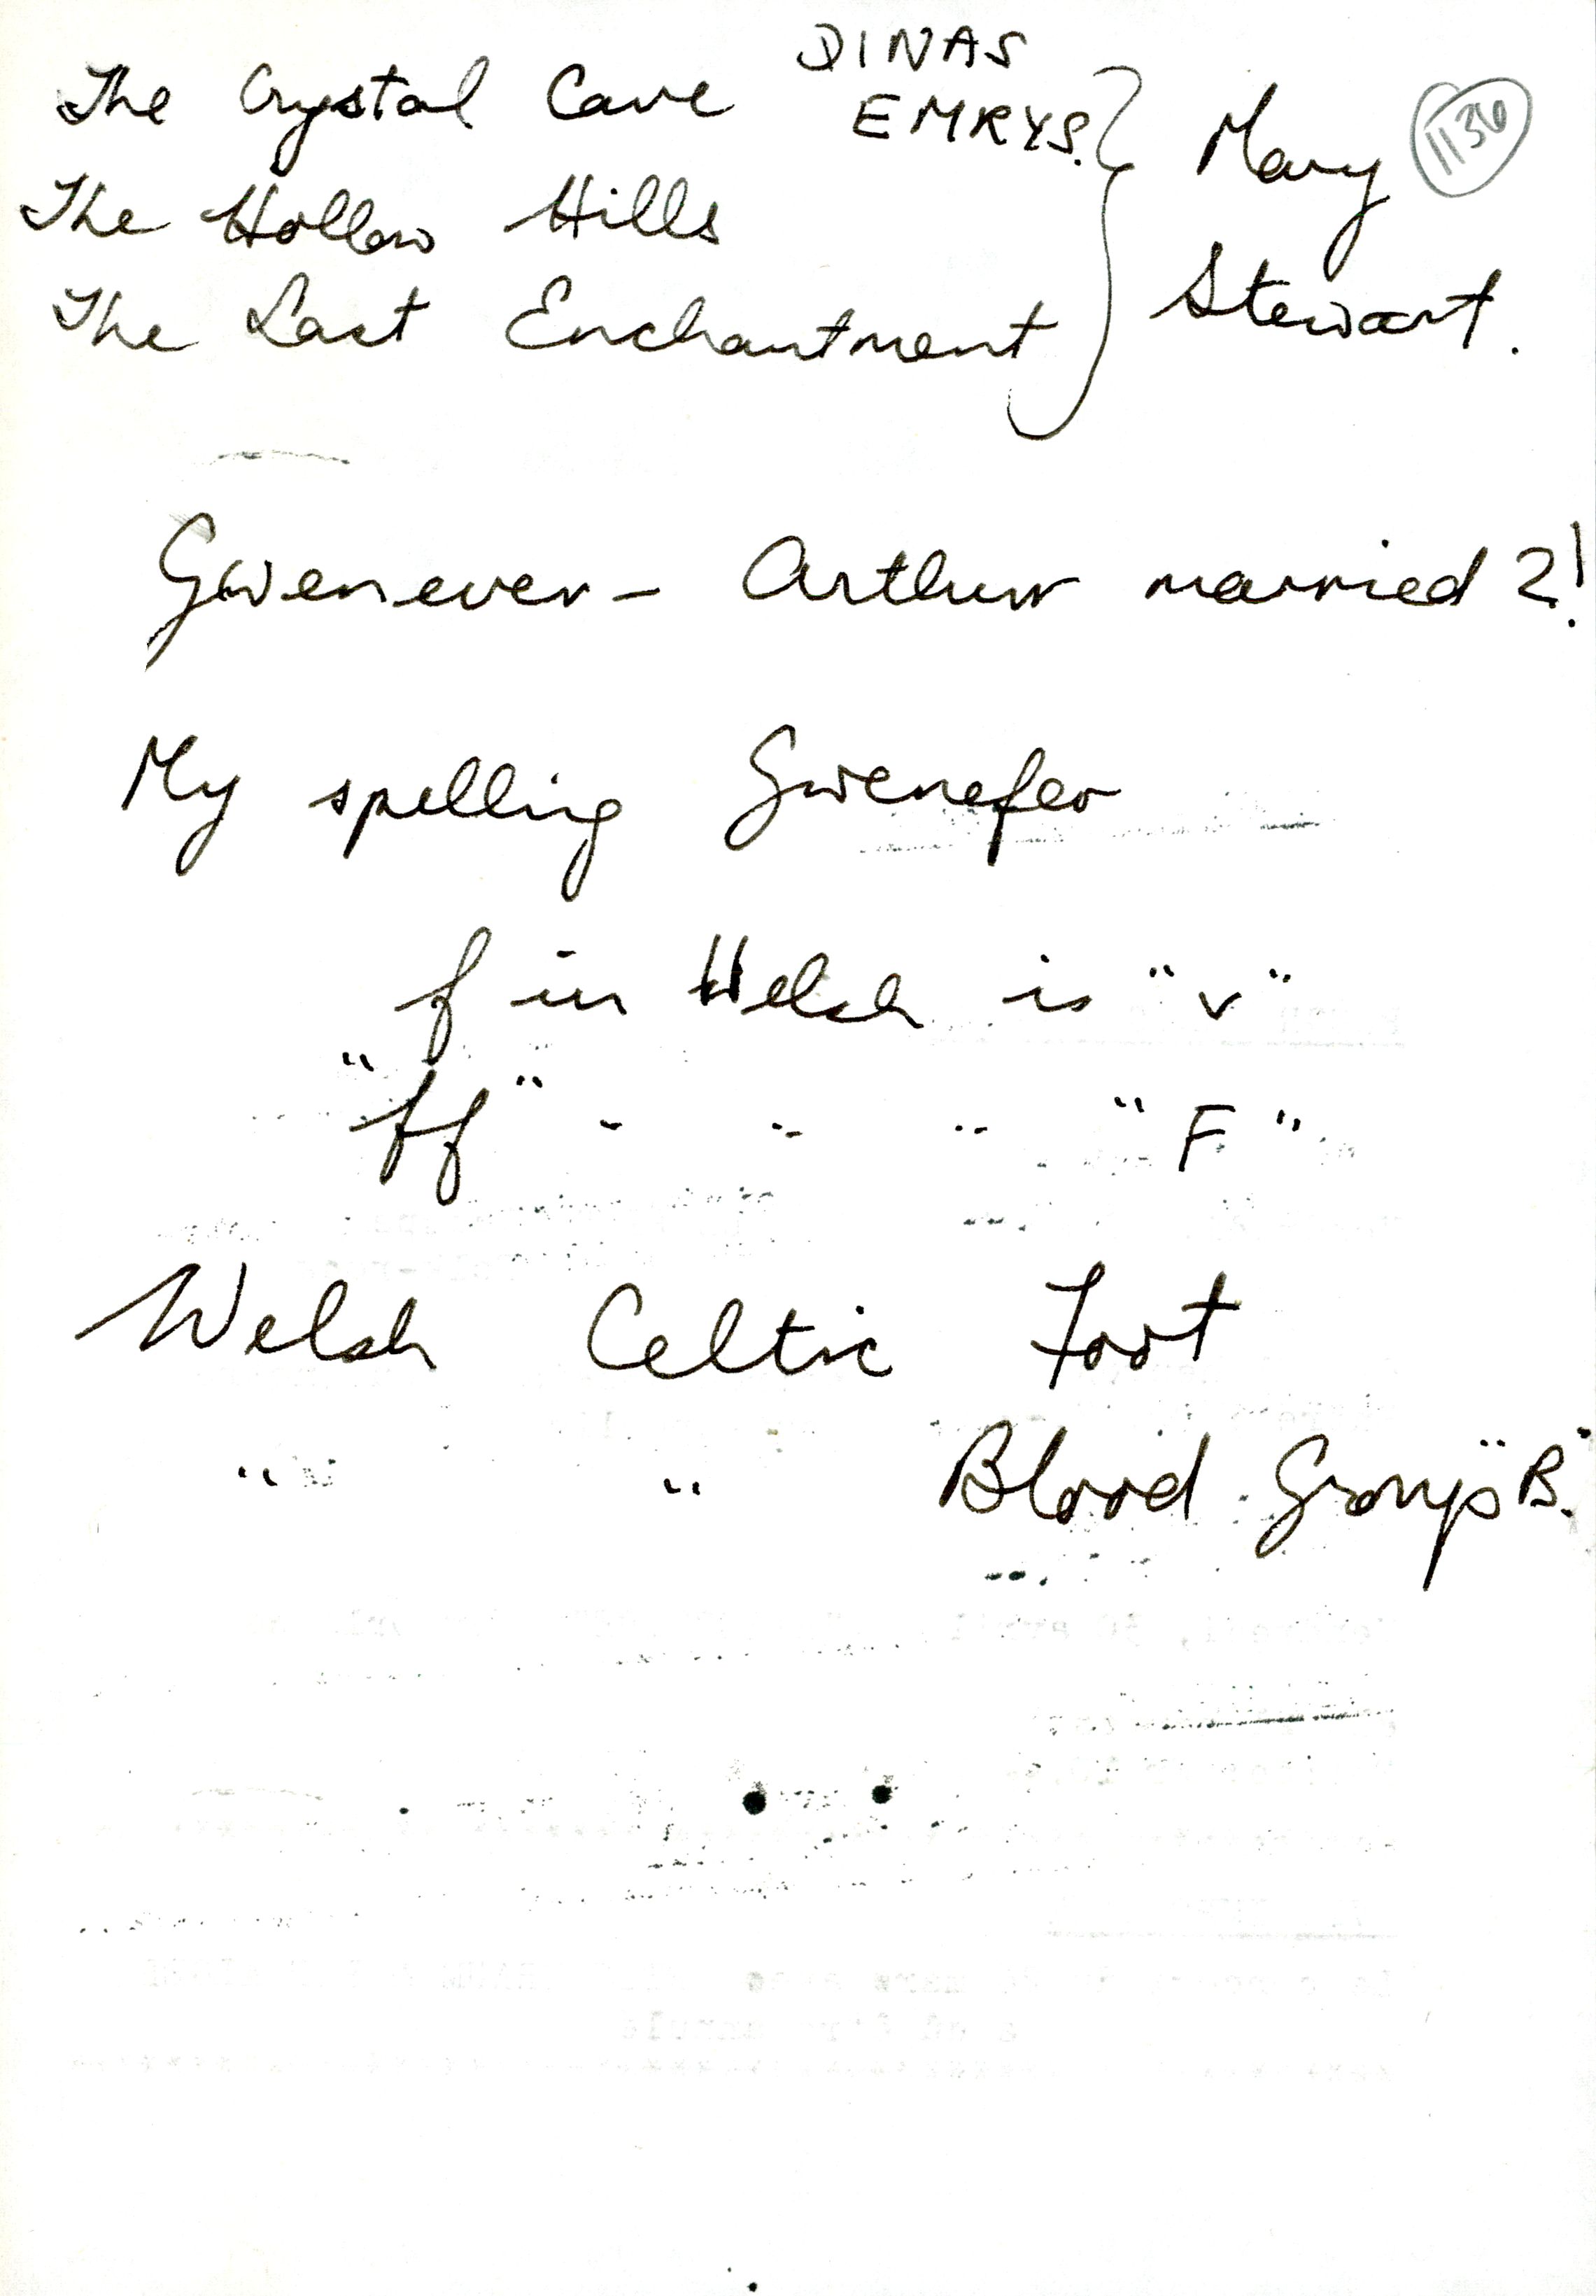 The Crystal Cave DINAS
EMRYS.
The Hollow Hills
The Last Enchantment
Mary
Stewart.
1136
Gwenever - Arthur married 2!
My spelling Gwenefer
f in Welsh is "v"
"ff" " " " "F"
Welsh Celtic Foot
" " Blood Group "B."